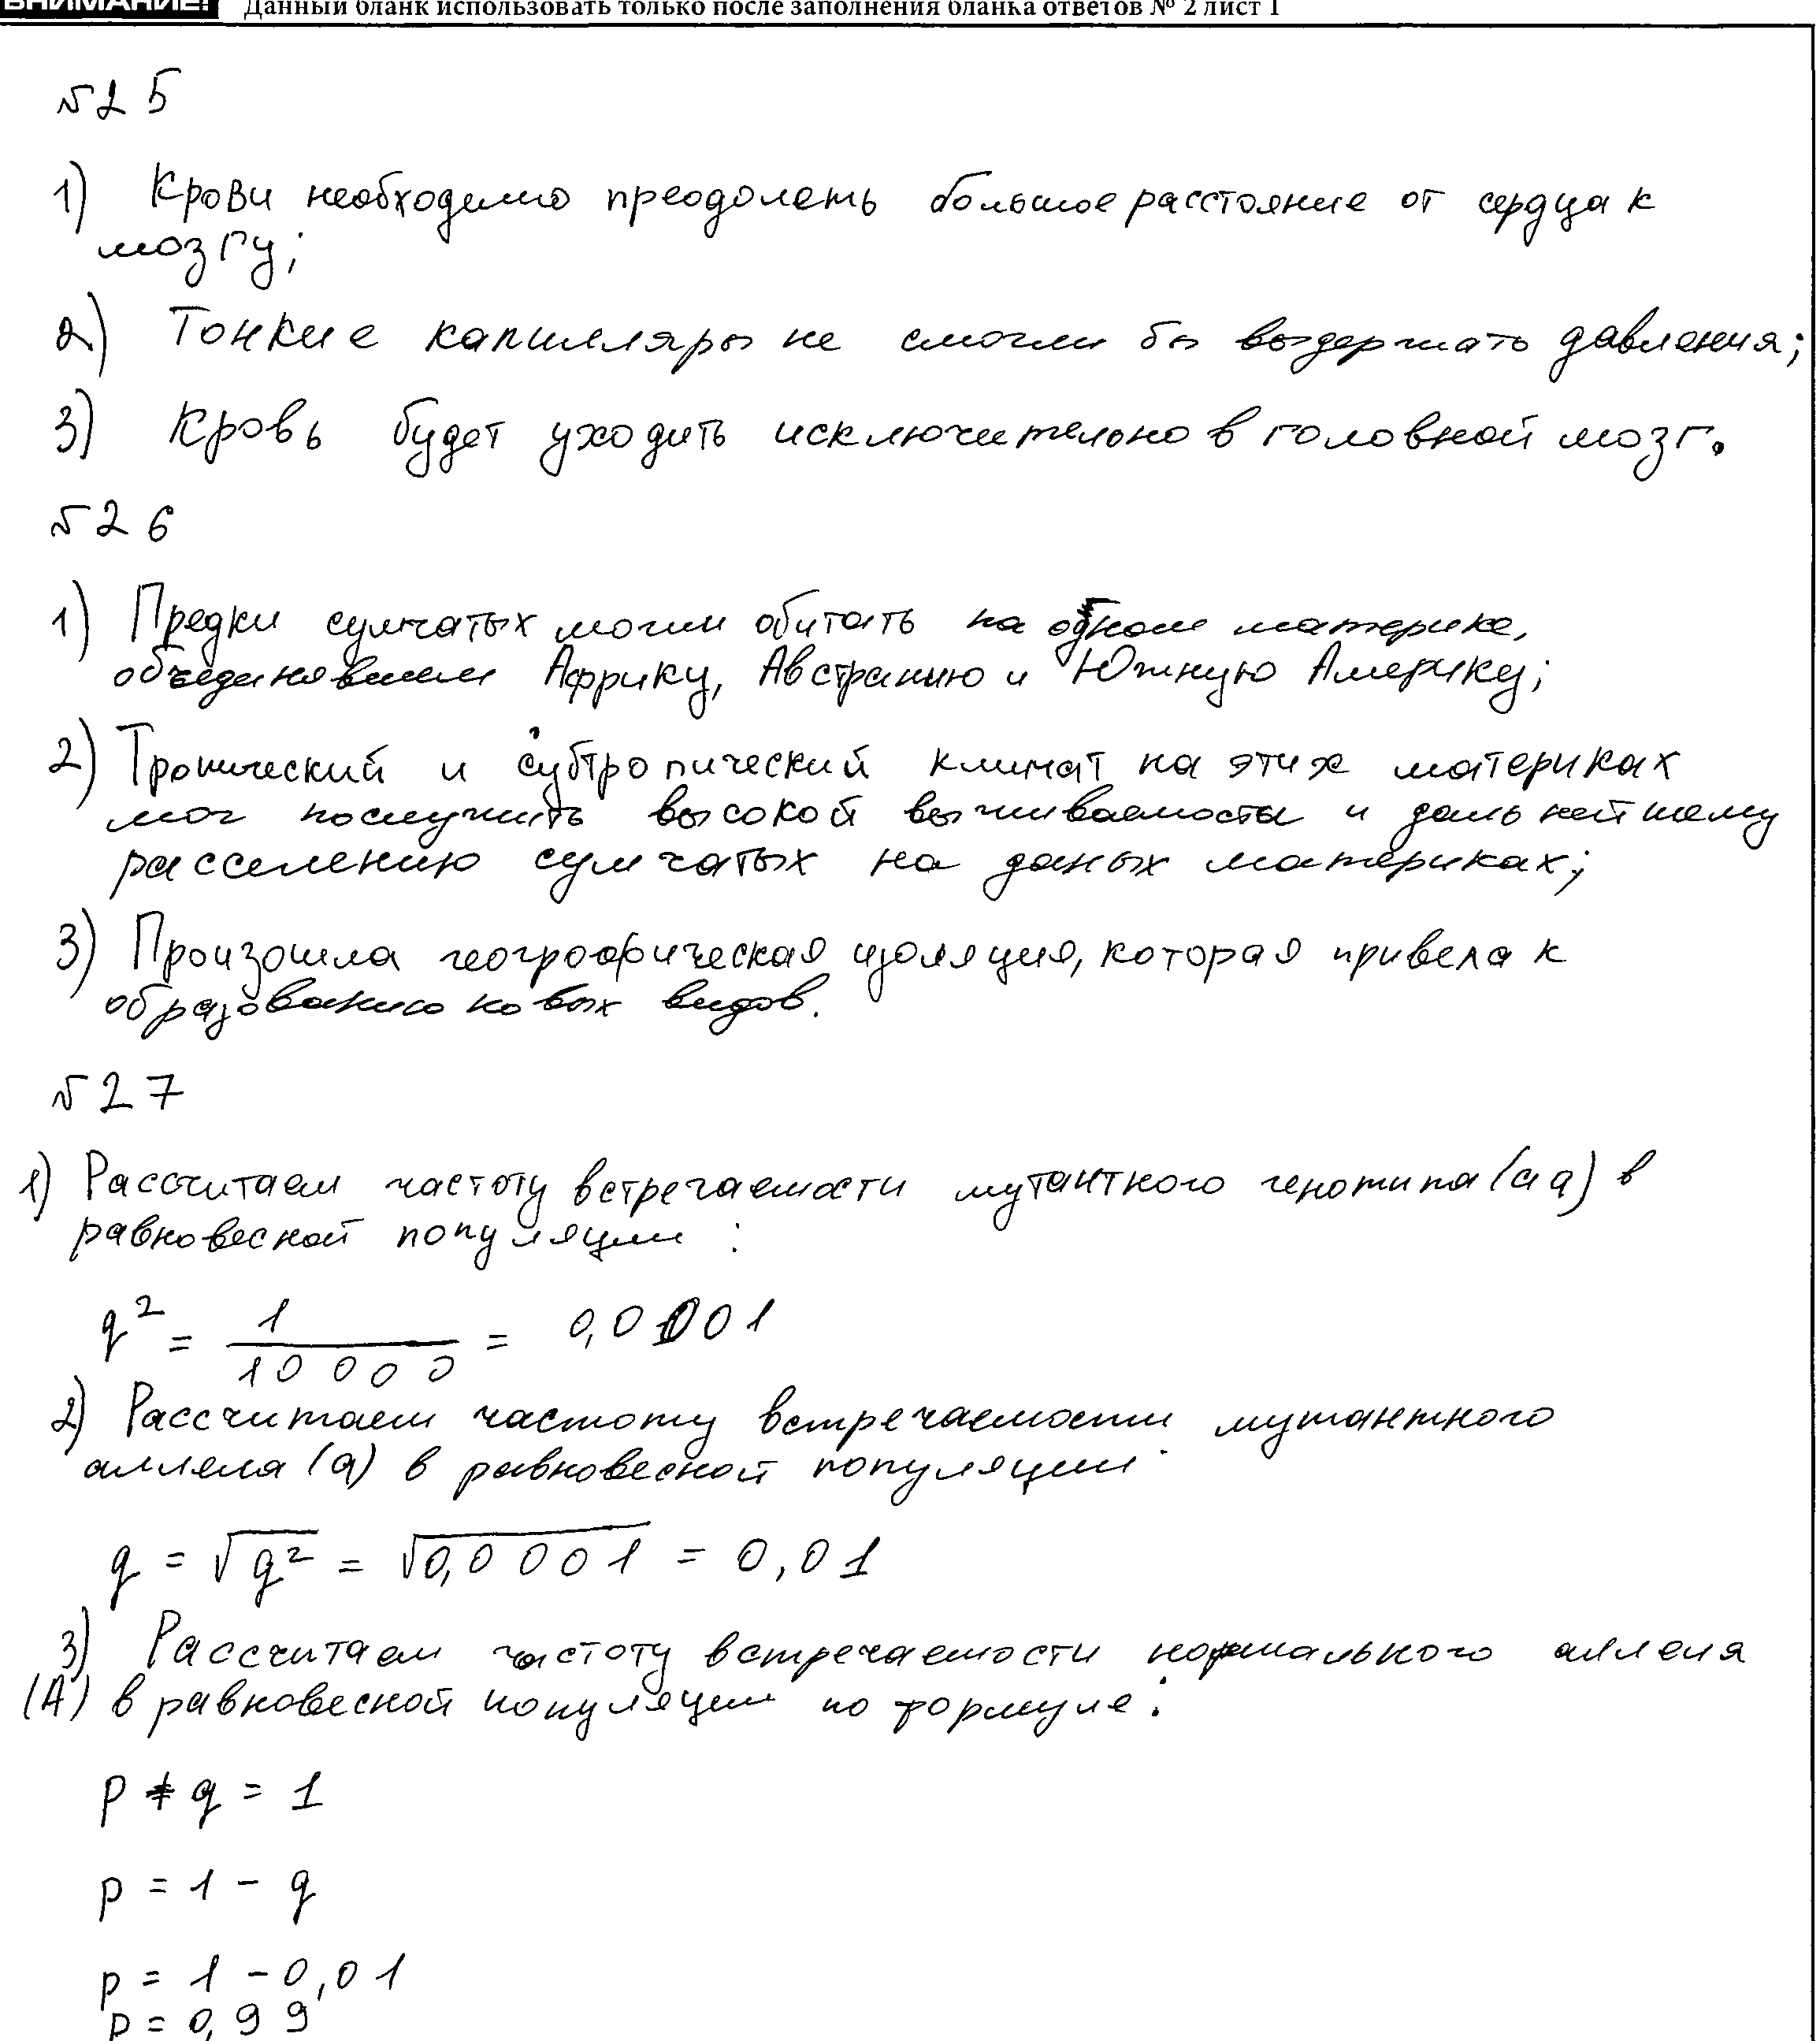 ВНИМАНИЕ! Данный бланк использовать только после заполнения бланка ответов № 2 лист 1
№25
1) Крови необходимо преодолеть большое расстояние от сердца к
мозгу;
2) Тонкие капилляры не смогли бы выдержать давления;
3) Кровь будет уходить исключительно в головной мозг.
№26
1) Предки сумчатых могли обитать на одном материке,
объединявшем Африку, Австралию и Южную Америку;
2) Тропический и субтропический климат на этих материках
мог послужить высокой выживаемости и дальнейшему
расселению сумчатых на даных материках;
3) Произошла географическая изоляция, которая привела к
образованию новых видов.
№27
1) Рассчитаем частоту встречаемости мутантного генотипа (aa) в
равновесной популяции :
q² = 1/10000 = 0,0001
2) Рассчитаем частоту встречаемости мутантного
аллеля (a) в равновесной популяции
q = √q² = √0,0001 = 0,01
3) Рассчитаем частоту встречаемости нормального аллеля
(A) в равновесной популяции по формуле:
p + q = 1
p = 1 - q
p = 1 - 0,01
p = 0,99